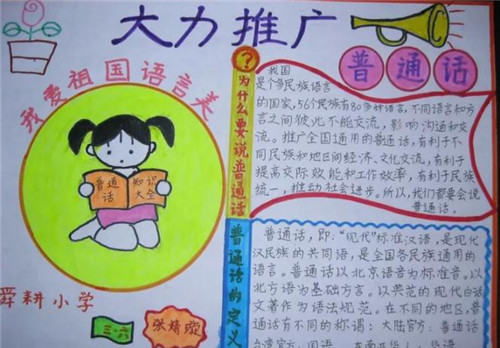 大力推广
普通话
我爱祖国语言美
普通话
知识大全
舜耕小学
三.六
张婧璇
?为什么要说普通话
我国
是个多民族语言
的国家,56个民族有80多种语言,不同语言和方
言之间彼此不能交流,影响沟通和交
流。推广全国通用的普通话,有利于不
同民族和地区间经济、文化交流,有利于
提高交际效能和工作效率,有利于民族
统一,推动社会进步。所以,我们都要会说
普通话。
普通话的定义
普通话,即:“现代”标准汉语,是现代
汉民族的共同语,是全国各民族通用的
语言。普通话以北京语音为标准音。以
北方语为基础方言。以典范的现代白话
文著作为语法规范。在不同的地区,普通
话有不同的称谓:大陆官方:普通话